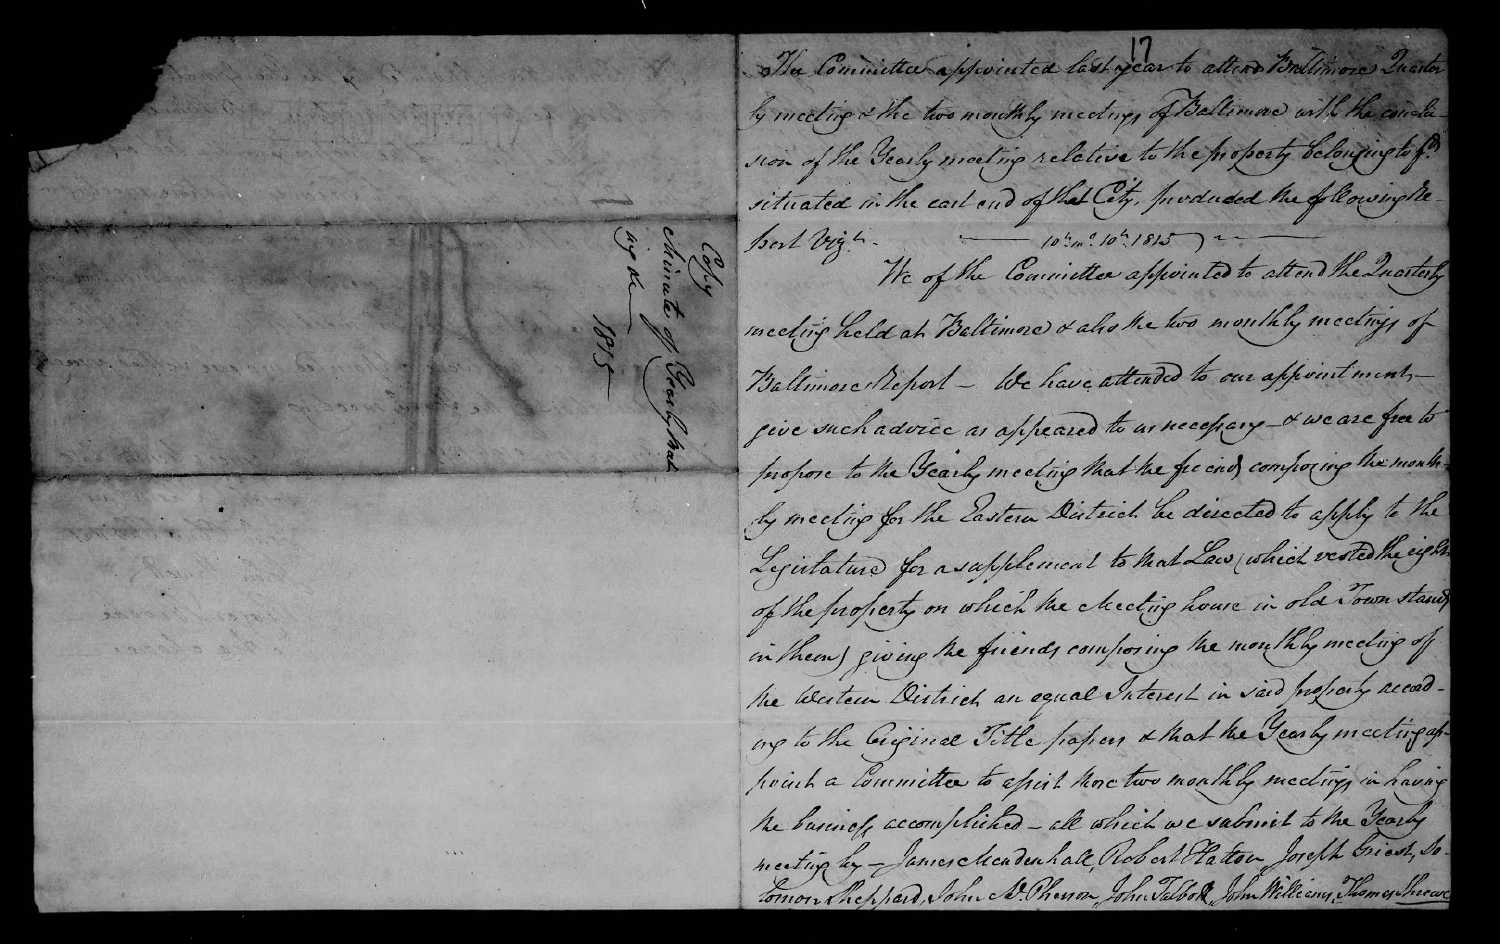 Copy
Minute of Yearly Meet
ing &c
1815
17
The Committee appointed last year to attend Baltimore Quarter
ly meeting & the two monthly meetings of Baltimore with the conclu-
sion of the Yearly meeting relative to the property belonging to fds
situated in the east end of that City, produced the following Re-
port Vizt.
10th mo 10th 1815
We of the Committee appointed to attend the Quarterly
meeting held at Baltimore & also the two monthly meetings of
Baltimore Report – We have attended to our appointment, –
give such advice as appeared to us necessary – & we are free to
propose to the Yearly meeting that the friends composing the month-
ly meeting for the Eastern District be directed to apply to the
Legislature for a supplement to that Law (which vested the right
of the property on which the Meeting house in old Town stands
in them) giving the friends composing the monthly meeting of
the Western District an equal Interest in said property accord-
ing to the Original Title papers & that the Yearly meeting ap-
point a Committee to assist those two monthly meetings in having
the business accomplished – all which we submit to the Yearly
meeting by – James Mendenhall, Robert Hatton, Joseph Griest, So-
lomon Sheppard, John McPherson, John Talbott, John Williams, Thomas Shreve